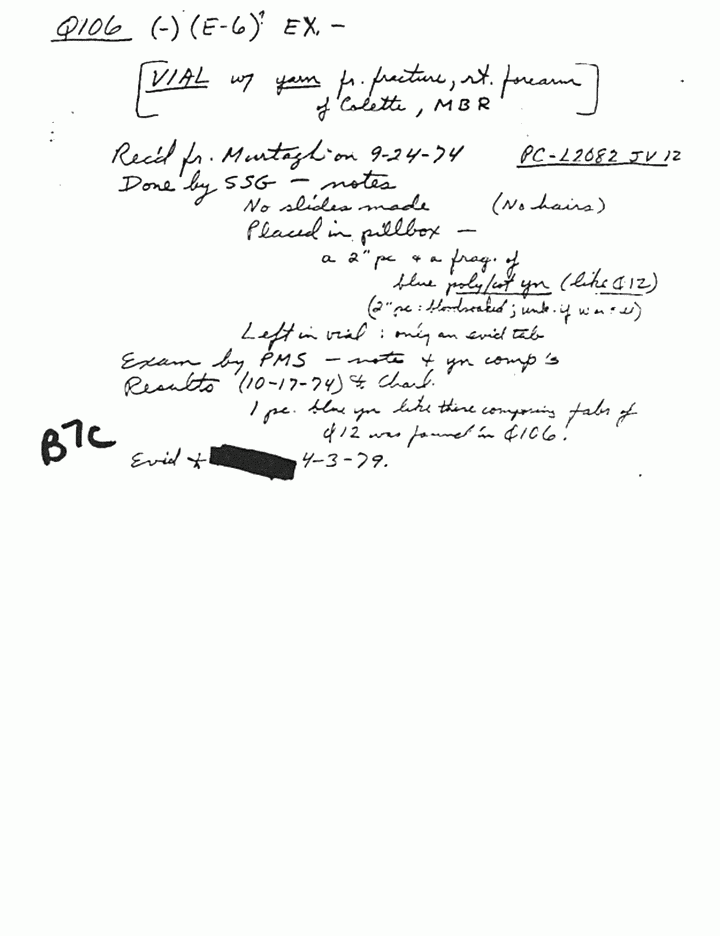 Q106 (-) (E-6)? EX. -
[VIAL w/ yarn fr. fracture, rt. forearm
of Colette, MBR]
Rec'd fr. Murtagh on 9-24-74 PC-L2082 JV 12
Done by SSG - notes
No slides made (No hairs)
Placed in pillbox -
a 2" pc + a frag. of
blue poly/cot yn (like Q12)
(2" pc: bloodsoaked; unk. if
Left in vial: only an evid tab
Exam by PMS - note + yn comp's
Results (10-17-74) & Chart.
1 pc. blue yn like those composing fabs of
Q12 was found in Q106.
B7C
Evid → 4-3-79.